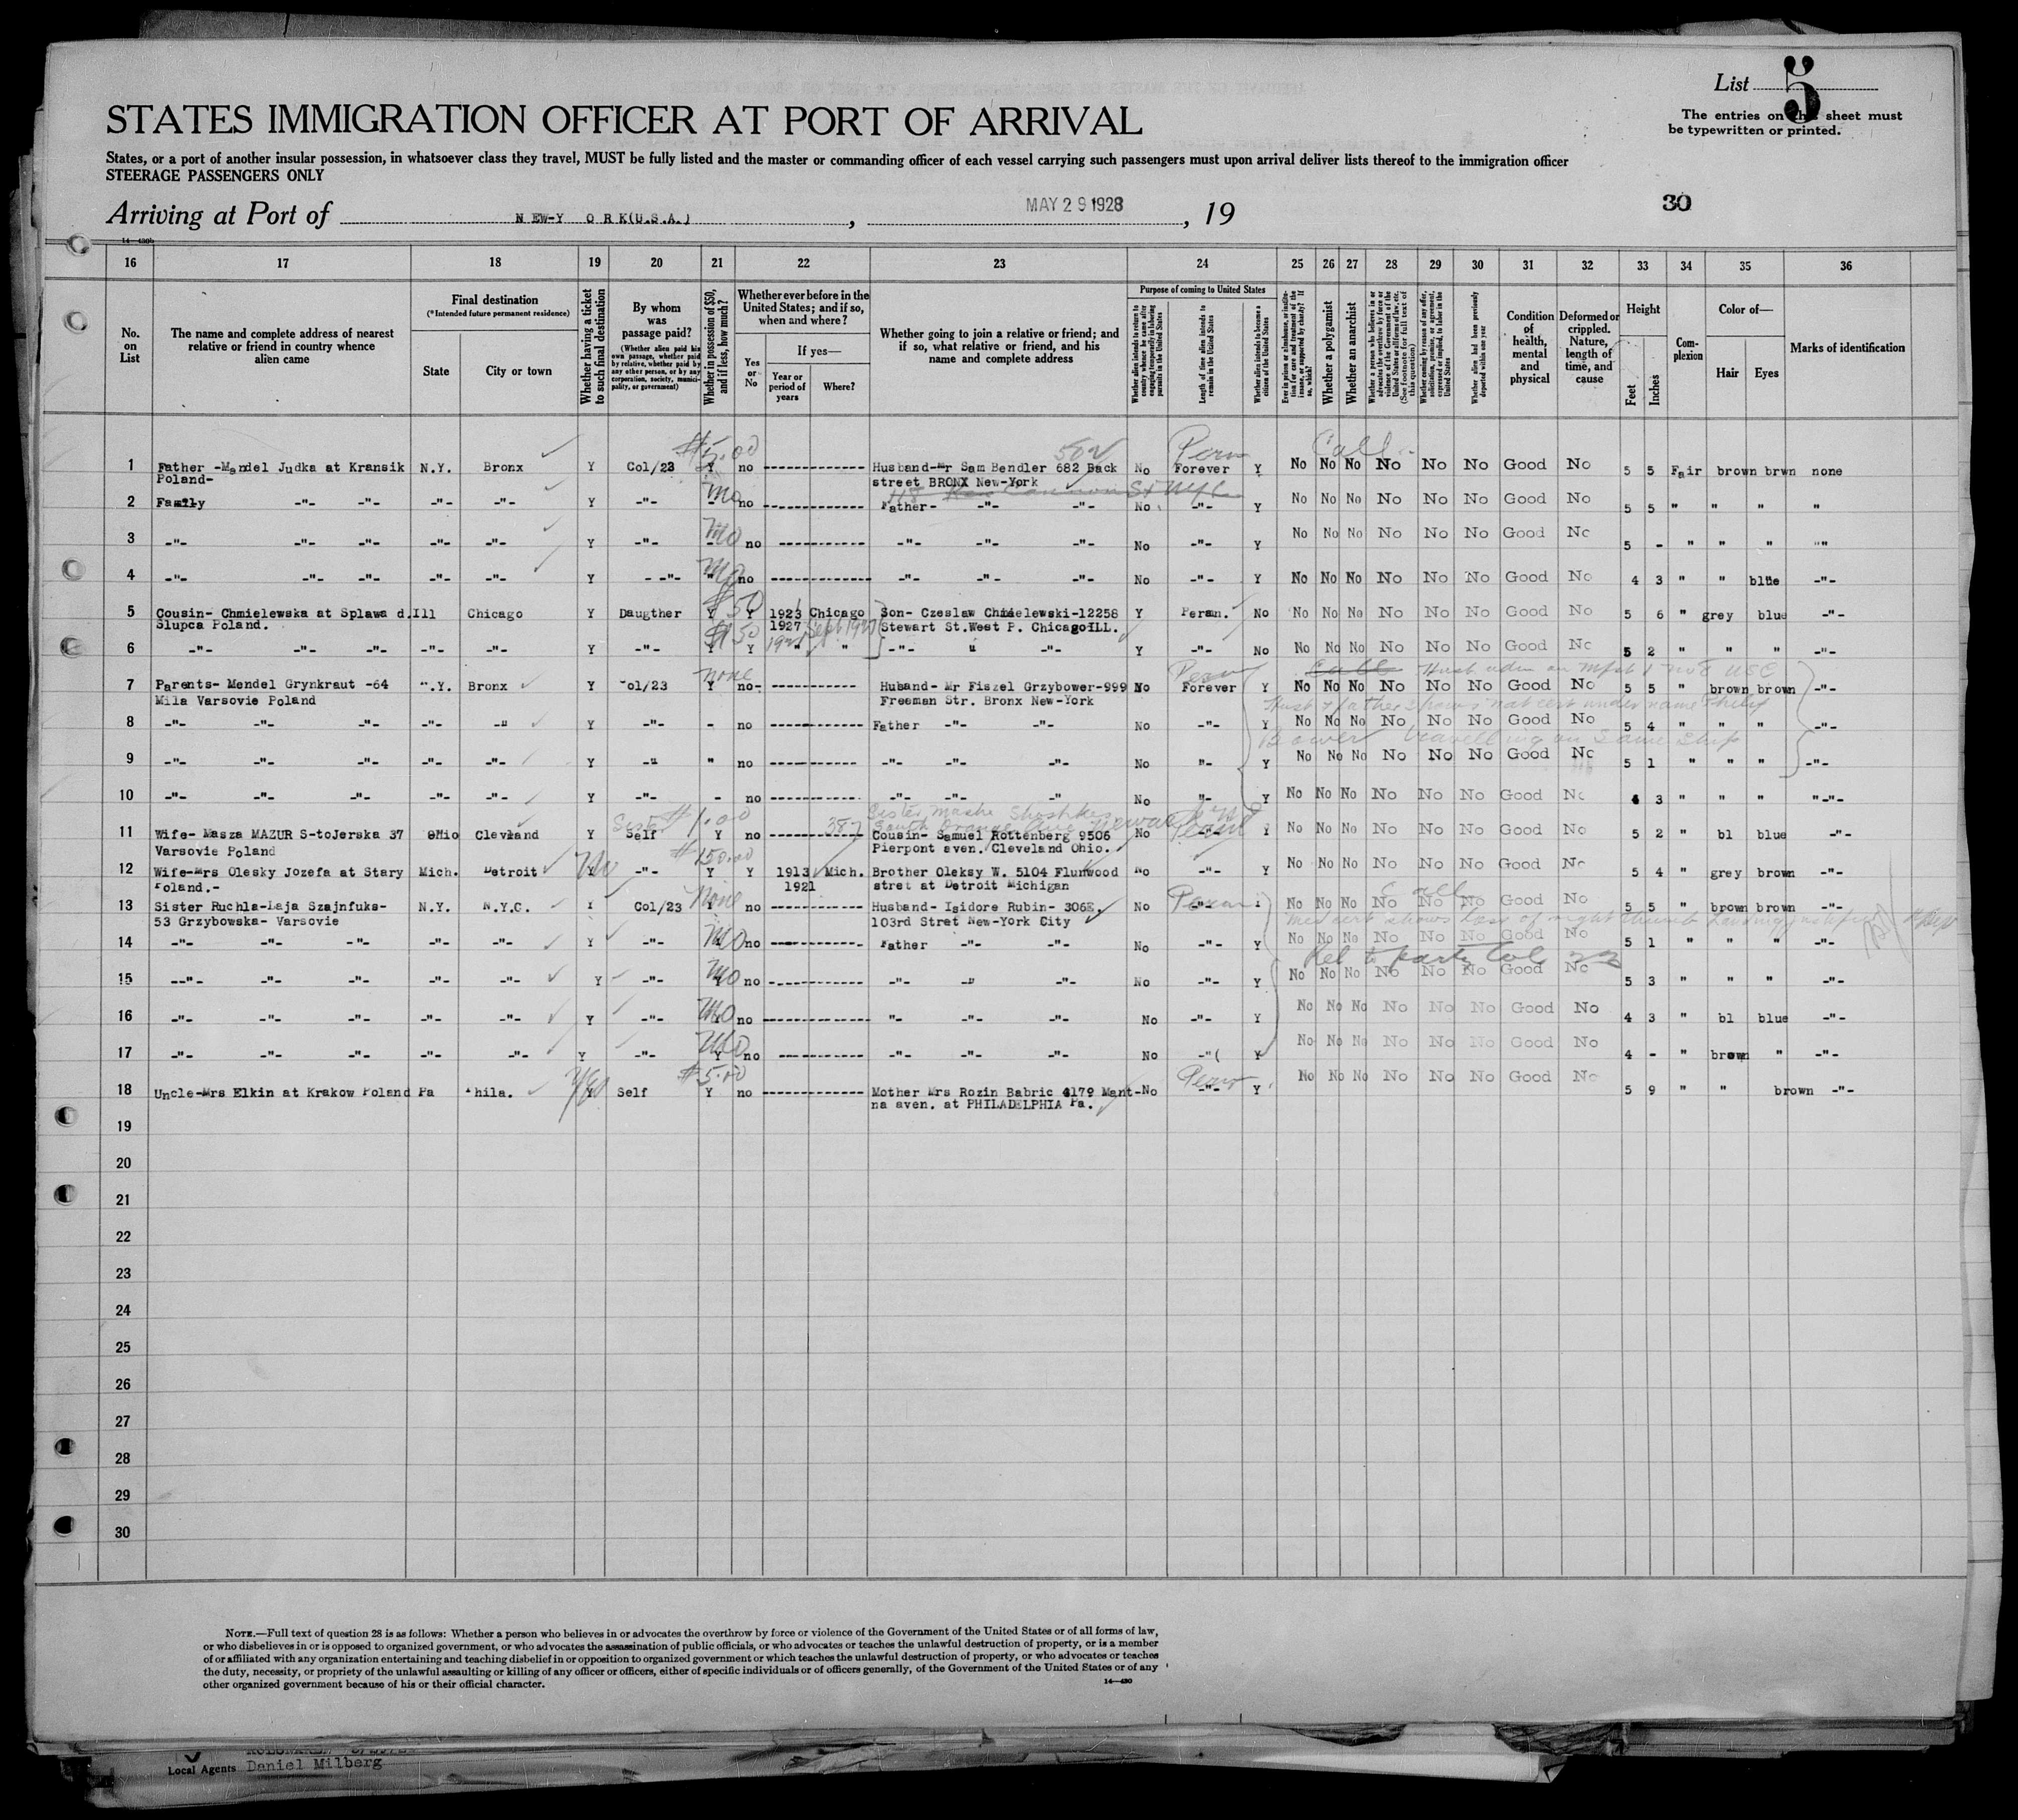 List 5
The entries on this sheet must
be typewritten or printed.
STATES IMMIGRATION OFFICER AT PORT OF ARRIVAL
States, or a port of another insular possession, in whatsoever class they travel, MUST be fully listed and the master or commanding officer of each vessel carrying such passengers must upon arrival deliver lists thereof to the immigration officer
STEERAGE PASSENGERS ONLY
Arriving at Port of NEW-Y ORK(U.S.A.), MAY 29 1928, 19
30
14—430b
16 17 18 19 20 21 22 23 24 25 26 27 28 29 30 31 32 33 34 35 36
No. on List
The name and complete address of nearest relative or friend in country whence alien came
Final destination
(*Intended future permanent residence)
State
City or town
Whether having a ticket to such final destination
By whom was passage paid?
(Whether alien paid his own passage, whether paid by relative, whether paid by any other person, or by any corporation, society, municipality, or government)
Whether in possession of $50, and if less, how much?
Whether ever before in the United States; and if so, when and where?
Yes or No
If yes—
Year or period of years
Where?
Whether going to join a relative or friend; and if so, what relative or friend, and his name and complete address
Purpose of coming to United States
Whether alien intends to return to country whence he came after engaging temporarily in laboring pursuits in the United States
Length of time alien intends to remain in the United States
Whether alien intends to become a citizen of the United States
Whether a polygamist
Whether an anarchist
Condition of health, mental and physical
Deformed or crippled. Nature, length of time, and cause
Height
Feet
Inches
Complexion
Color of—
Hair
Eyes
Marks of identification
$5.00 50 Perm Call
1 Father -Mandel Judka at Kransik N.Y. Bronx Y Col/23 Y no Husband-Mr Sam Bendler 682 Back No Forever Y No No No No No No Good No 5 5 Fair brown brwn none
Poland- street BRONX New-York
2 Family -"- -"- -"- -"- Y -"- - no Father- -"- -"- No -"- Y No No No No No No Good No 5 5 " " " "
3 -"- -"- -"- -"- -"- Y -"- - no -"- -"- -"- No -"- Y No No No No No No Good No 5 - " " " ""
4 -"- -"- -"- -"- -"- Y - -"- " no -"- -"- -"- No -"- Y No No No No No No Good No 4 3 " " blue -"-
$50
5 Cousin- Chmielewska at Splawa d. Ill Chicago Y Daugther Y Y 1923 Chicago Son- Czeslaw Chmielewski-12258 Y Peram. No No No No No No No Good No 5 6 " grey blue -"-
Slupca Poland. 1927 Sept 1927 Stewart St.West P. Chicago ILL.
$150
6 -"- -"- -"- -"- -"- Y -"- Y Y " " -"- " -"- Y -"- No No No No No No No Good No 5 2 " " " -"-
none Perm Call
7 Parents- Mendel Grynkraut -64 ".Y. Bronx Y ol/23 Y no- Huband- Mr Fiszel Grzybower-999 No Forever Y No No No No No No Good No 5 5 " brown brown -"-
Mila Varsovie Poland Freeman Str. Bronx New-York
Hust & father shows nat cert under name Philip
8 -"- -"- -"- -"- -" Y -"- - no Father -"- -"- No -"- Y No No No No No No Good No 5 4 " " " -"-
Bower travelling on same ship
9 -"- -"- -"- -"- -"- Y -" " no -"- -"- -"- No "- Y No No No No No No Good No 5 1 " " " -"-
10 -"- -"- -"- -"- -"- Y -"- - no -"- -"- -" No "- Y No No No No No No Good No 4 3 " " " "-"-
Sister $1.00 387 Sister Masha
South Orange Ave Newark
11 Wife- Masza MAZUR S-toJerska 37 OHio Clevland Y Self Y no Cousin- Samuel Rottenberg 9506 No -"- Y No No No No No No Good No 5 2 " bl blue -"-
Varsovie Poland Pierpont aven. Cleveland Ohio.
No $150.00
12 Wife-Mrs Olesky Jozefa at Stary Mich. Detroit Y -"- Y Y 1913 Mich. Brother Oleksy W. 5104 Flunwood No -"- Y No No No No No No Good No 5 4 " grey brown -"-
Poland.- 1921 stret at Detroit Michigan
None Perm Call
13 Sister Ruchla-Laja Szajnfuks- N.Y. N.Y.C. Y Col/23 Y no Husband- Isidore Rubin- 306E. No -"- Y No No No No No No Good No 5 5 " brown brown -"-
53 Grzybowska- Varsovie 103rd Stret New-York City
Med cert shows loss of right thumb
14 -"- -"- -"- -"- -"- Y -"- no Father -"- -"- No -"- Y No No No No No No Good No 5 1 " " " -"-
Rel to party Col 23
15 --"- -"- -"- -"- -"- Y -"- Y no -"- -" -"- No -"- Y No No No No No No Good No 5 3 " " " -"-
16 -"- -"- -"- -"- -"- Y -"- Y no "- -"- -"- No -"- Y No No No No No No Good No 4 3 " bl blue -"-
17 -"- -"- -"- -"- -"- Y -"- Y no -"- -"- -"- No -"( Y No No No No No No Good No 4 - " brown " -"-
Yes $5.00 Perm
18 Uncle-Mrs Elkin at Krakow Poland Pa Phila. Y Self Y no Mother Mrs Rozin Babric 4179 Mant- No -"- Y No No No No No No Good No 5 9 " " brown -"-
na aven. at PHILADELPHIA Pa.
19
20
21
22
23
24
25
26
27
28
29
30
NOTE.—Full text of question 28 is as follows: Whether a person who believes in or advocates the overthrow by force or violence of the Government of the United States or of all forms of law,
or who disbelieves in or is opposed to organized government, or who advocates the assassination of public officials, or who advocates or teaches the unlawful destruction of property, or is a member
of or affiliated with any organization entertaining and teaching disbelief in or opposition to organized government or which teaches the unlawful destruction of property, or who advocates or teaches
the duty, necessity, or propriety of the unlawful assaulting or killing of any officer or officers, either of specific individuals or of officers generally, of the Government of the United States or of any
other organized government because of his or their official character.
14—430
Local Agents Daniel Milberg